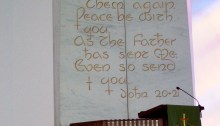 them again
Peace be with
you
as the Father
has sent Me
Even so send
I you
John 20-21